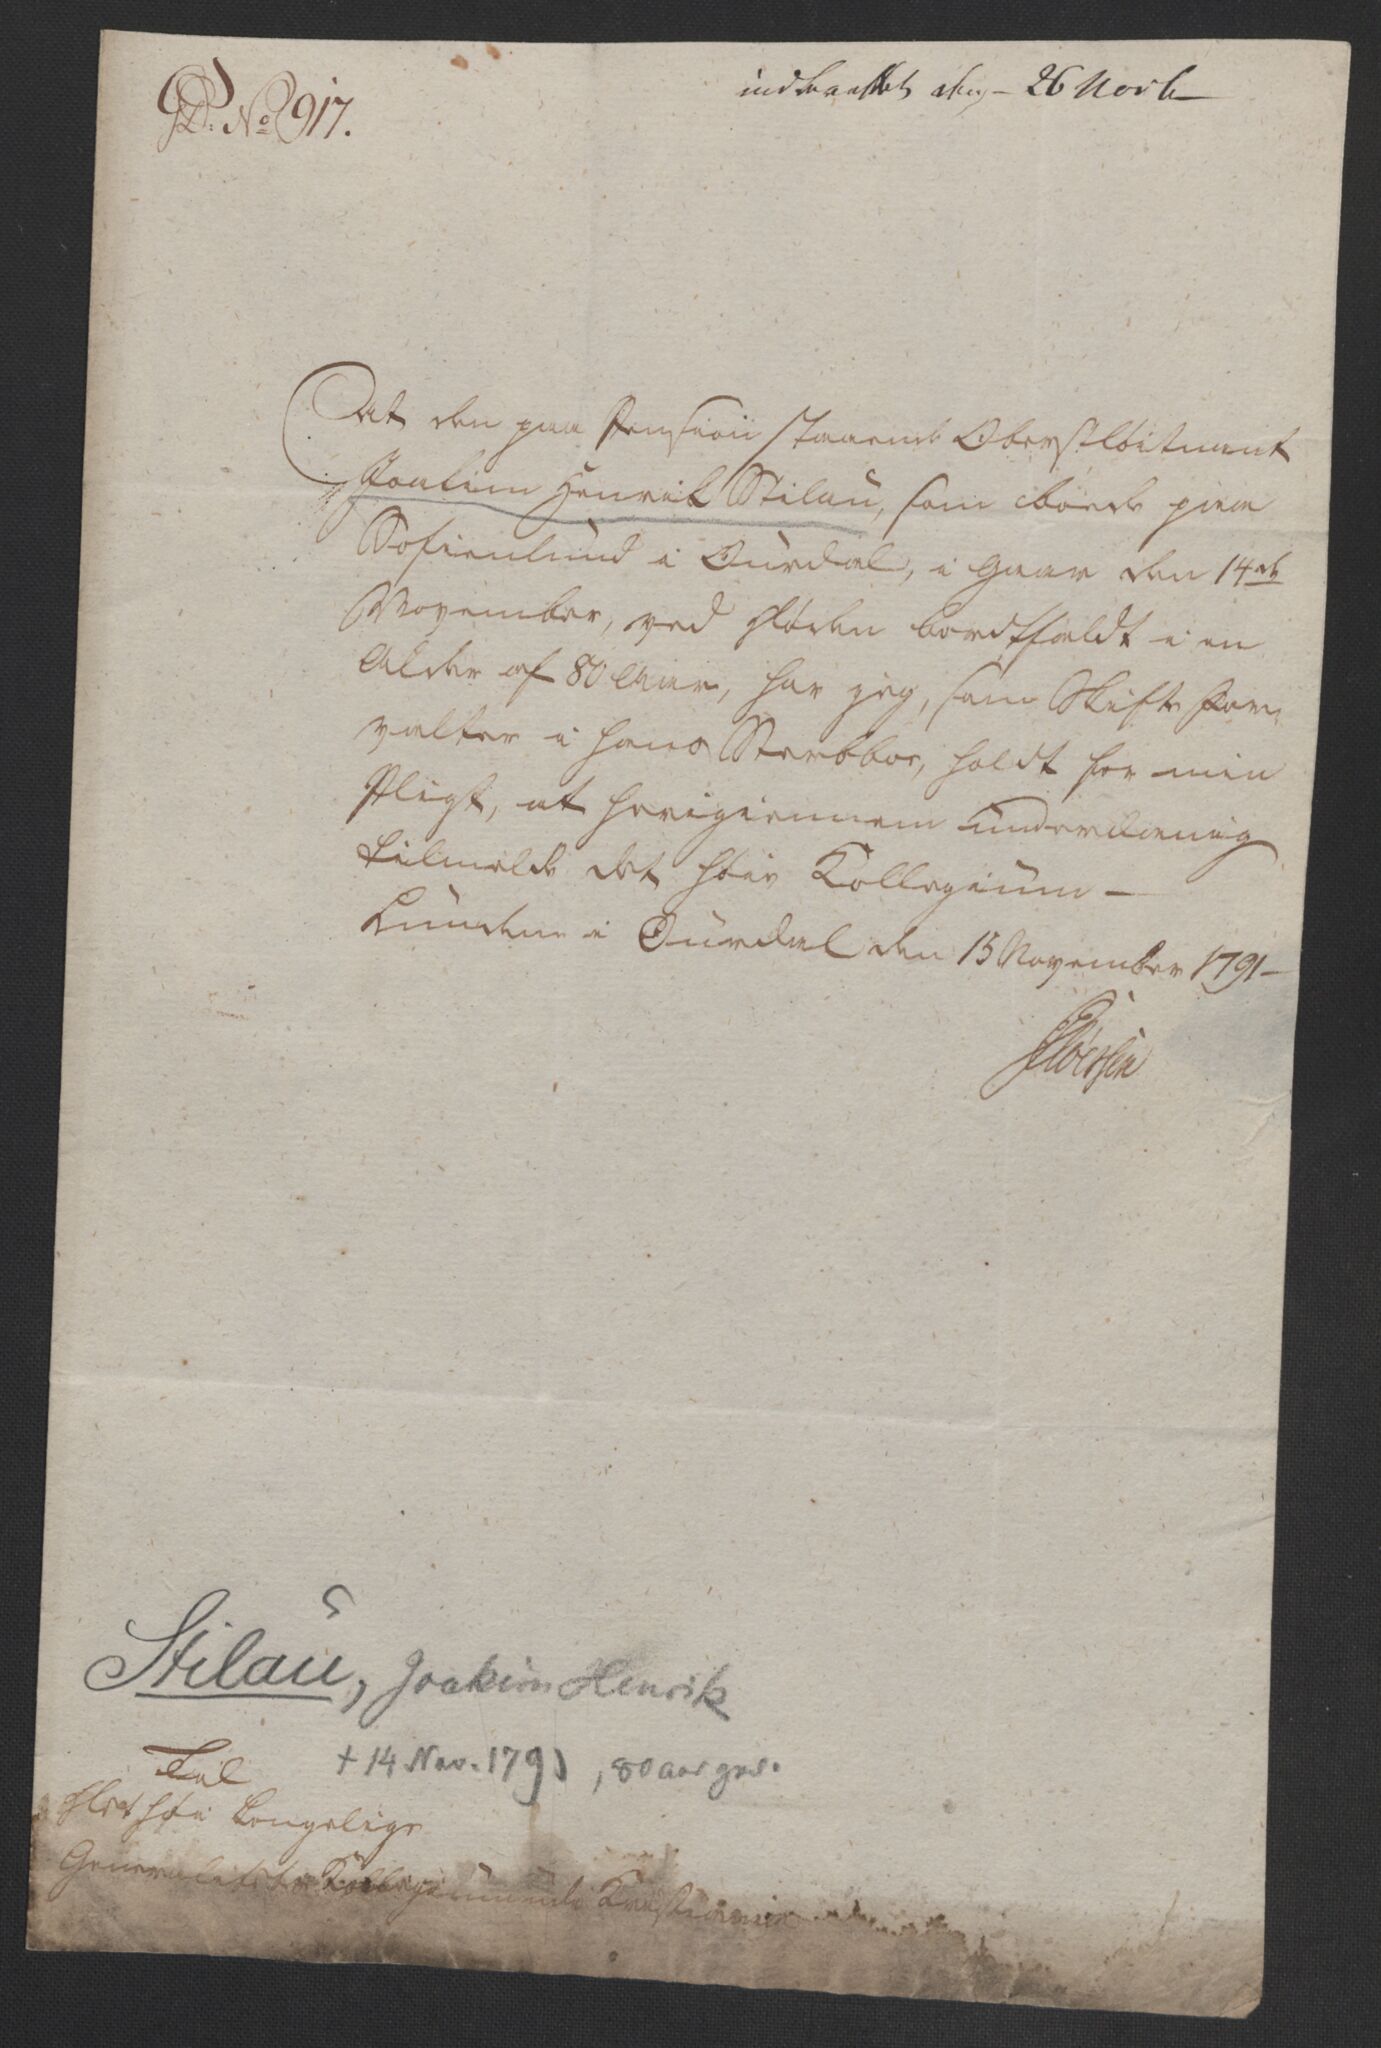 GP. No 917.
indkommet den 26 Novb
At den paa Pension staaende Oberstløitnant
Joakim Henrik Stilau, som boede paa
Sofienlund i Ourdal, i Gaar den 14de
November, ved Døden bortfaldt i en
Alder af 80 Aar, har jeg, som Skifte For,
valter i hans Sterbboe, holdt for min
Pligt, at herigiennem underdanig
tilmelde det høie Kollegium –
Lunden i Ourdal den 15 November 1791 –
Stilau, Joakim Henrik
+ 14 Nov. 1791, 80 aar gml.
Til
Det høi Kongelige
Generalitets Kollegium